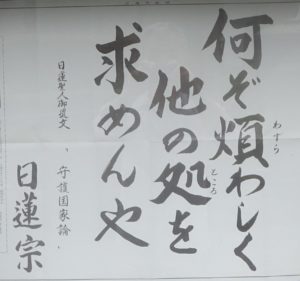 何ぞ煩わしく
わずら
他の処を
ところ
求めんや
日蓮聖人御遺文
、守護国家論、
日蓮宗